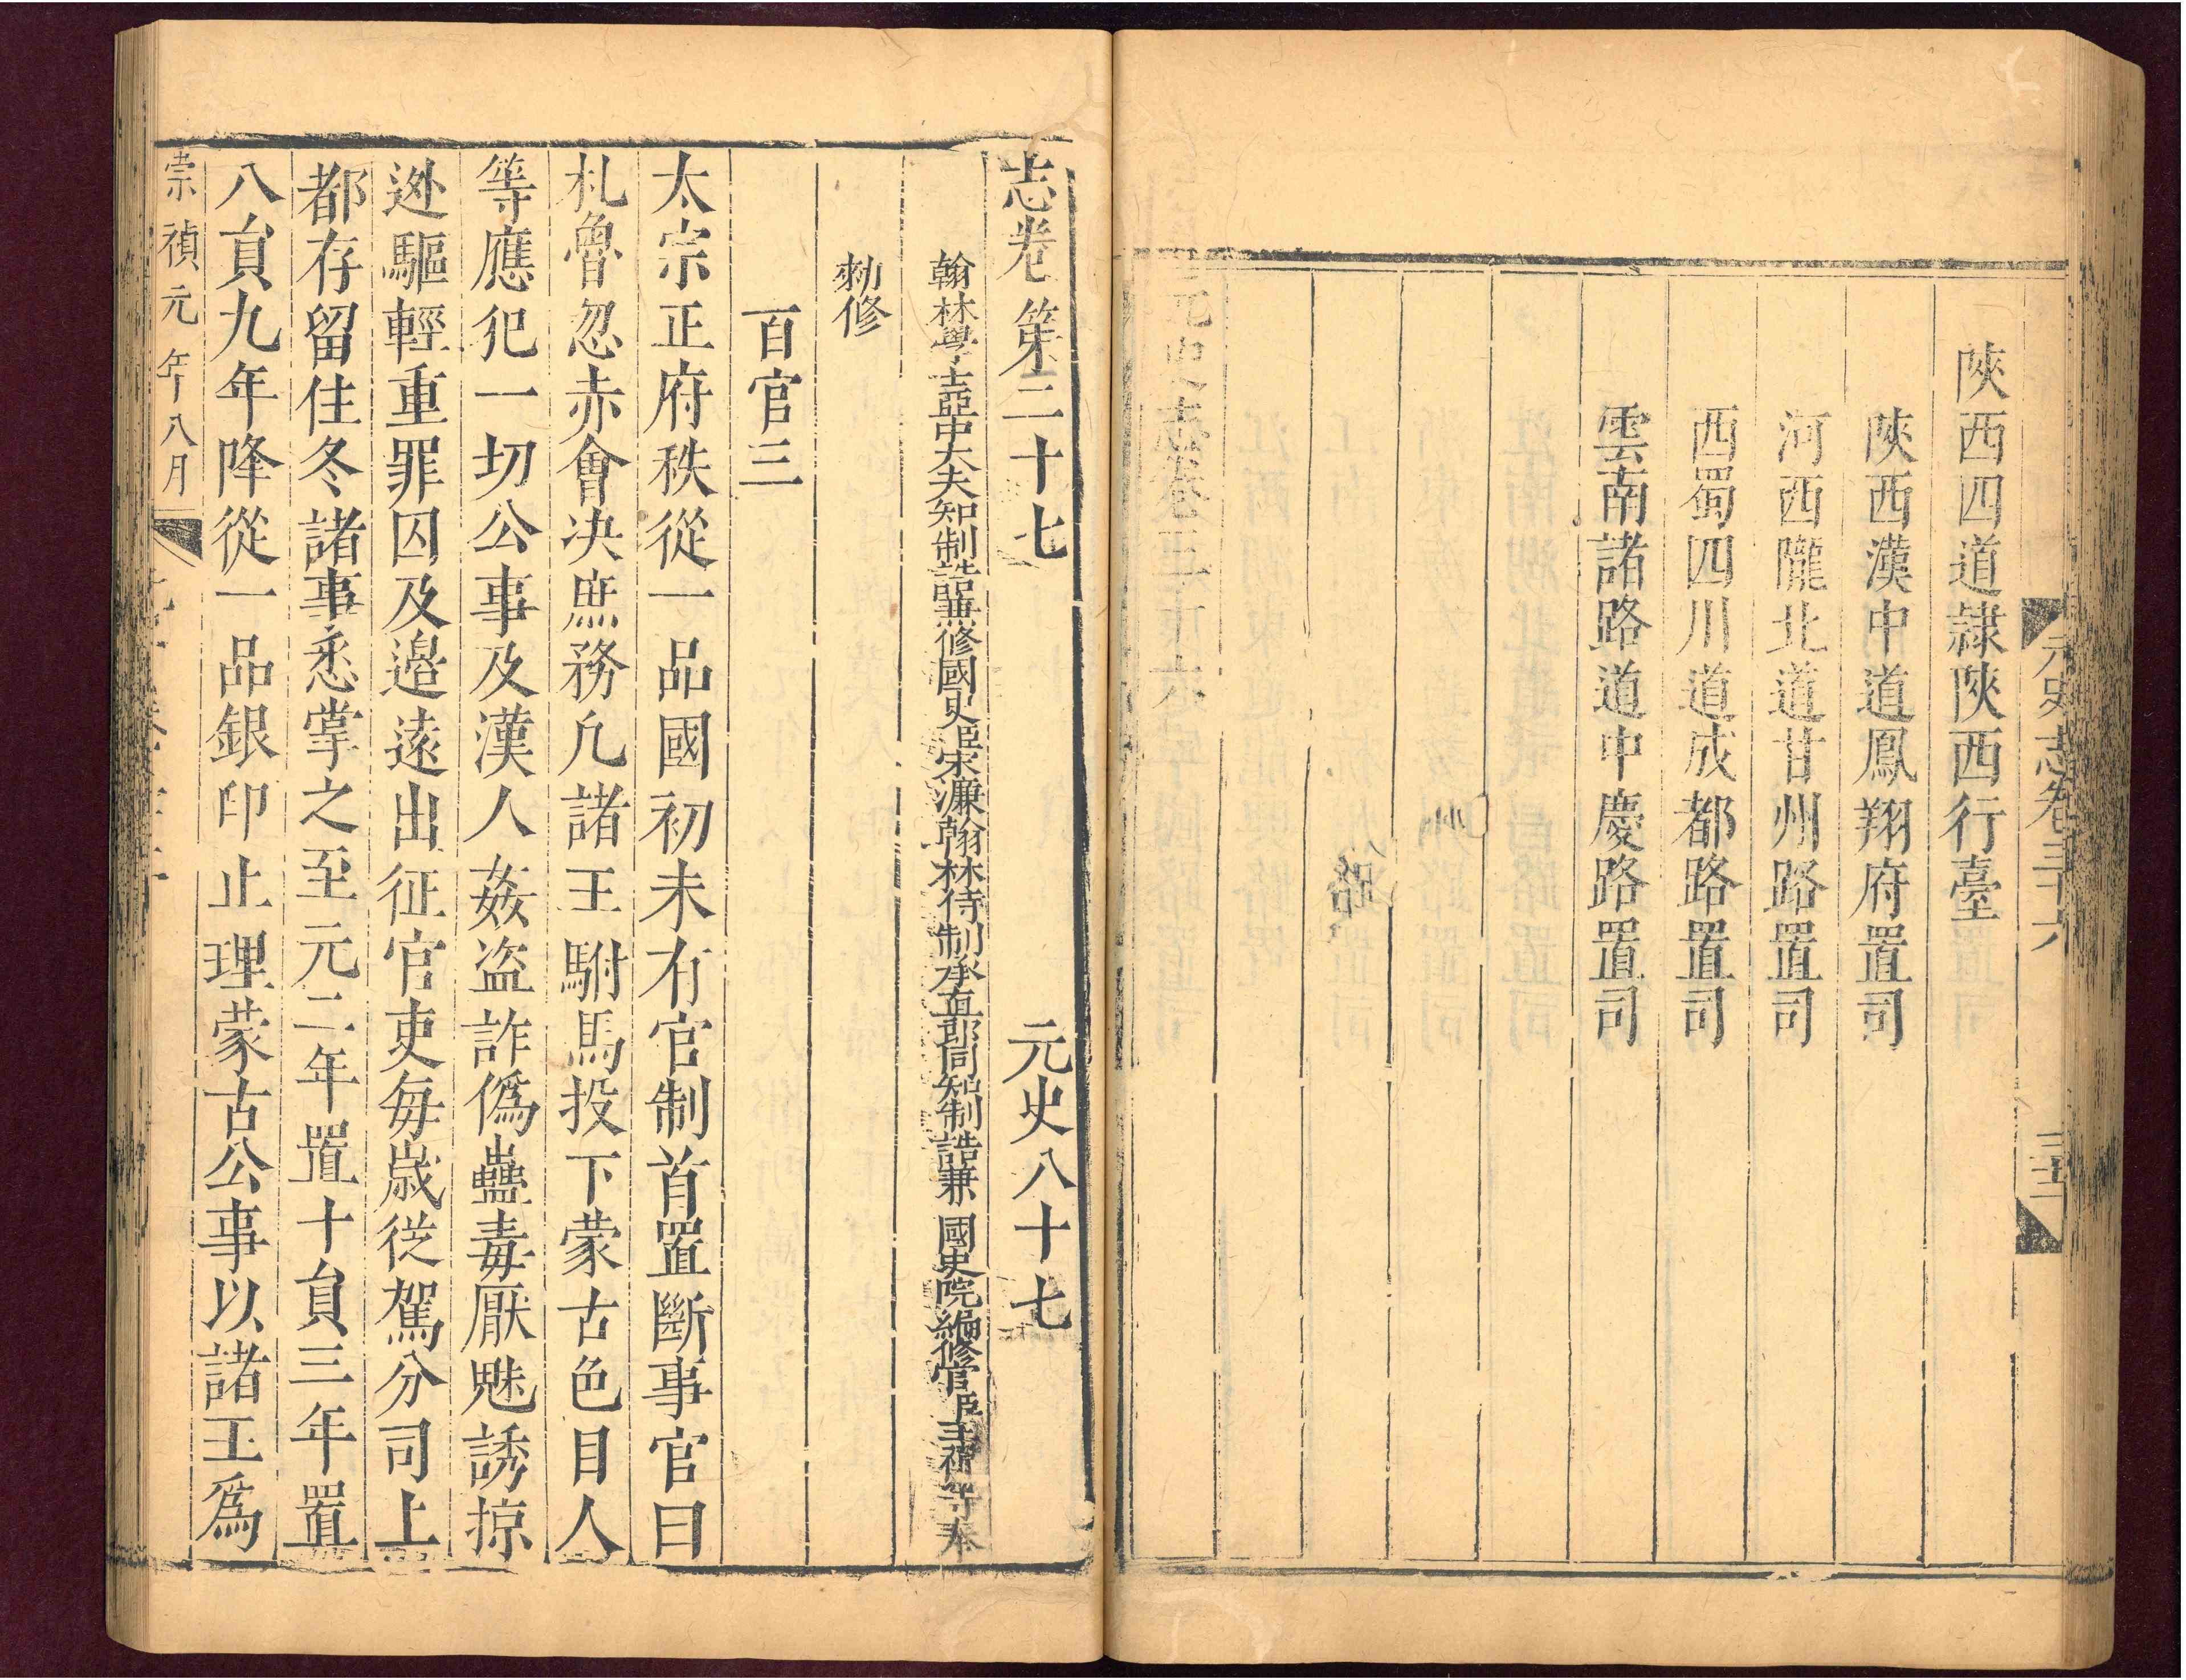 元史志卷三十六
陝西四道隷陝西行臺
陝西漢中道鳳翔府置司
河西隴北道甘州路置司
西蜀四川道成都路置司
雲南諸路道中慶路置司
路
志卷第二十七 元史八十七
翰林學士亞中大夫知制誥兼修國史臣宋濂翰林待制承直郎同知制誥兼國史院編修官臣王禕等奉
勑修
百官三
太宗正府秩從一品國初未有官制首置斷事官曰
札魯忽赤會决庶務凢諸王駙馬投下蒙古色目人
等應犯一切公事及漢人姦盗詐僞蠱毒厭魅誘掠
逃驅輕重罪囚及邉遠出征官吏毎歲從駕分司上
都存留住冬諸事悉掌之至元二年置十貟三年置
八貟九年降從一品銀印止理蒙古公事以諸王爲
崇禎元年八月